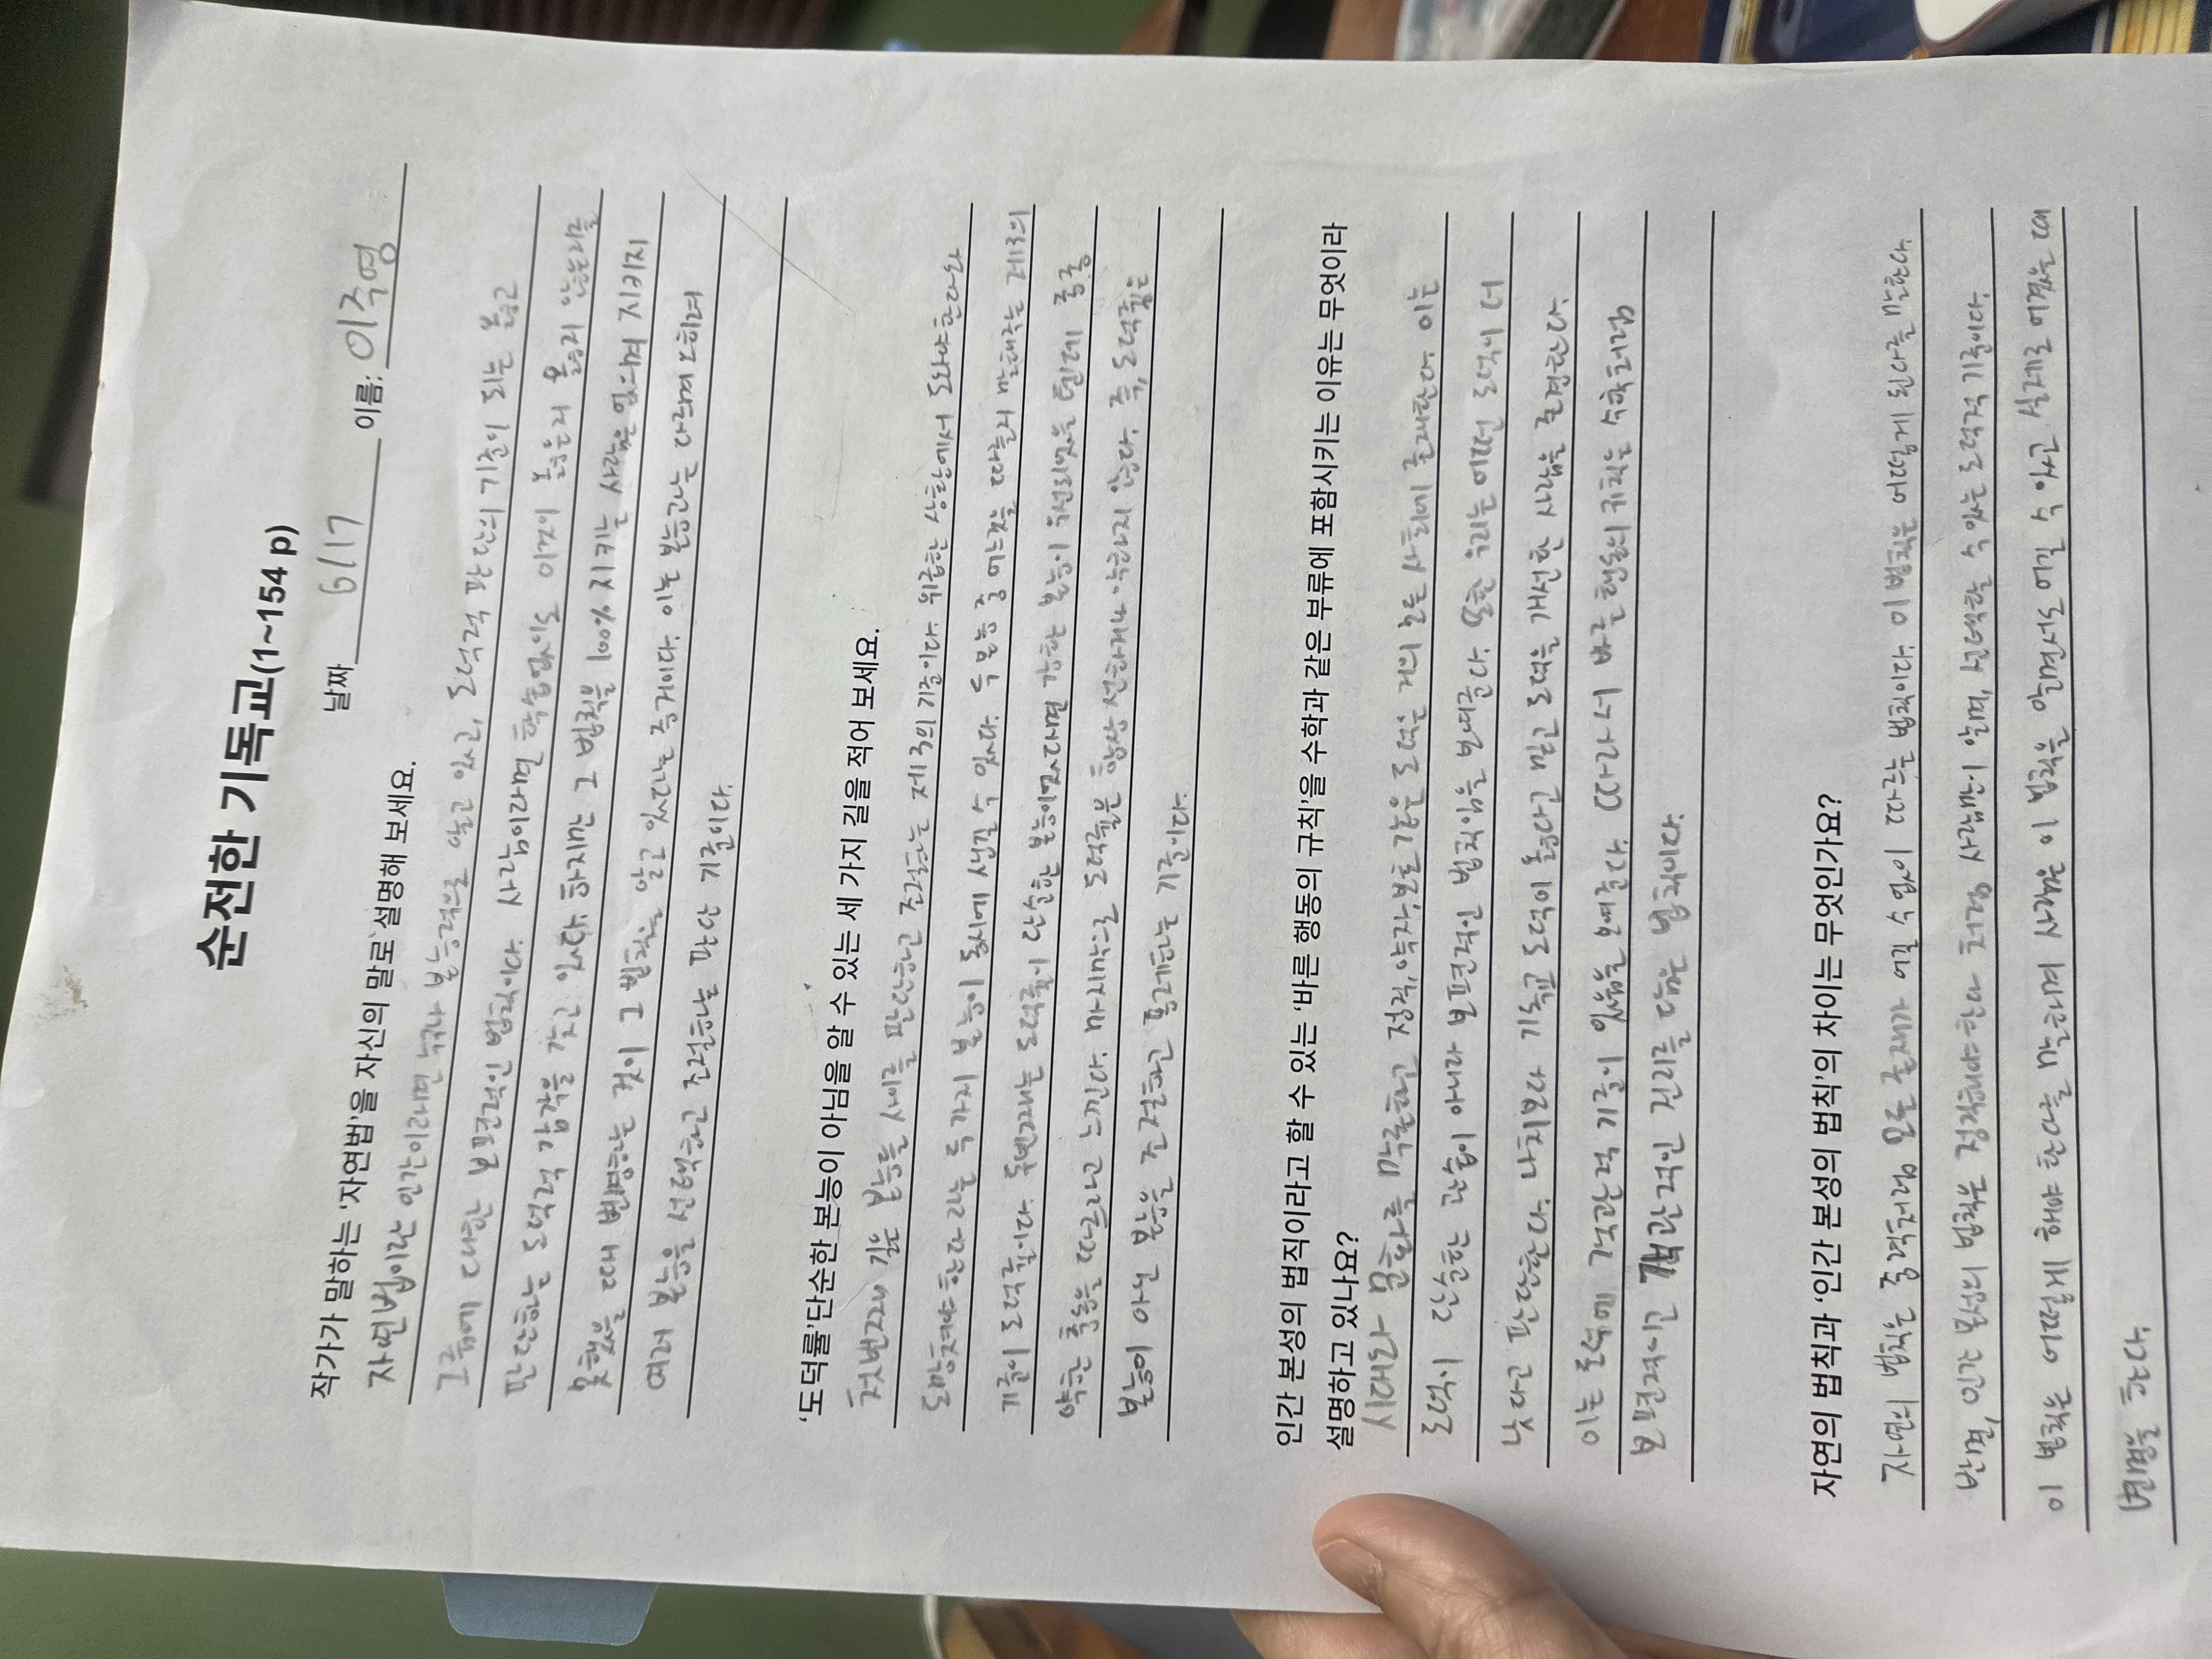 순전한 기독교(1~154 p)
날짜 6/17 이름: 이주영
작가가 말하는 '자연법'을 자신의 말로 설명해 보세요.
자연법이란 인간이라면 누구나 본능적으로 알고 있고, 도덕적 판단의 기준이 되는 옳고
그름에 대한 보편적인 법칙이다. 사람이라면 학습 없이도 이것이 옳은지 옳지 않은지를
판단하는 도덕적 감각을 갖고 있다. 하지만 그 법칙을 100% 지키는 사람은 없으며 지키지
못했을 때 변명하는 것이 그 법칙을 알고 있다는 증거이다. 이는 본능과는 다르며 오히려
여러 본능을 선택하고 조절하는 판단 기준이다.
'도덕률'단순한 본능이 아님을 알 수 있는 세 가지 길을 적어 보세요.
첫번째 길은 본능들 사이를 판단하고 조절하는 제3의 기준이다. 위급한 상황에서 도와야 한다와
도망쳐야 한다라는 두 가지 본능이 동시에 생길 수 있다. 두 본능 중 어느것을 따를지 말해주는 제3의
기준이 도덕률이다. 두번째는 도덕률이 단순한 본능이었다면 강한 본능이 우선되었을 텐데 종종
약한 충동을 따르라고 느낀다. 마지막으로 도덕률은 항상 선하거나 악하지 않다. 즉, 도덕률은
본능이 아닌 본능을 조절하고 통제하는 기준이다.
인간 본성의 법직이라고 할 수 있는 '바른 행동의 규칙'을 수학과 같은 부류에 포함시키는 이유는 무엇이라
설명하고 있나요?
시대와 문화를 막론하고 정직, 약자보호 같은 도덕은 거의 모든 사회에 존재한다. 이는
도덕이 단순한 관습이 아니라 보편적인 법칙임을 보여준다. 또한 우리는 어떤 도덕이 더
낫다고 판단한다. 나치보다 기독교 도덕이 옳다고 믿고 도덕을 개선한 사람을 존경한다.
이는 도덕에 객관적 기준이 있음을 보여준다. 따라서 바른 행동의 규칙은 수학처럼
보편적이고 객관적인 진리를 담은 법칙이다.
자연의 법칙과 '인간 본성의 법칙'의 차이는 무엇인가요?
자연의 법칙은 중력처럼 모든 존재가 어길 수 없이 따르는 법칙이다. 이 법칙은 어떻게 된다를 말한다.
반면, 인간 본성의 법칙은 정직해야 한다 처럼 사람만이 알며, 선택할 수 있는 도덕적 기준이다.
이 법칙은 어떻게 해야 한다를 말하며 사람은 이 법칙을 알면서도 어길 수 있고 실제로 어겼을 때
변명을 한다.